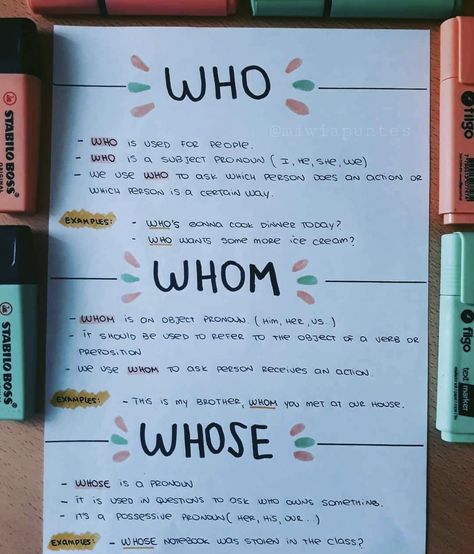 WHO
@miwiapuntes
- WHO IS USED FOR PEOPLE.
- WHO IS A SUBJECT PRONOUN ( I, HE, SHE, WE)
- WE USE WHO TO ASK WHICH PERSON DOES AN ACTION OR
WHICH PERSON IS A CERTAIN WAY.
EXAMPLES: - WHO'S GONNA COOK DINNER TODAY?
- WHO WANTS SOME MORE ICE CREAM?
WHOM
- WHOM IS AN OBJECT PRONOUN. ( HIM, HER, US..)
- IT SHOULD BE USED TO REFER TO THE OBJECT OF A VERB OR
PREPOSITION
- WE USE WHOM TO ASK PERSON RECEIVES AN ACTION.
EXAMPLES: - THIS IS MY BROTHER, WHOM YOU MET AT OUR HOUSE.
WHOSE
- WHOSE IS A PRONOUN.
- IT IS USED IN QUESTIONS TO ASK WHO OWNS SOMETHING.
- ITS A POSSESSIVE PRONOUN ( HER, HIS, OUR ...)
EXAMPLES: - WHOSE NOTEBOOK WAS STOLEN IN THE CLASS?
STABILO BOSS
ORIGINAL
STABILO BOSS
filgo
filgo
text marker